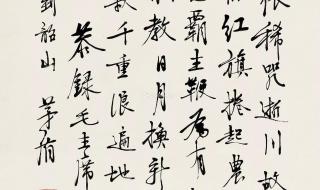 稀咒逝川故
红旗捲起農
霸主鞭為有
教日月換新
千重浪遍地
恭録毛主席
到韶山 茅盾